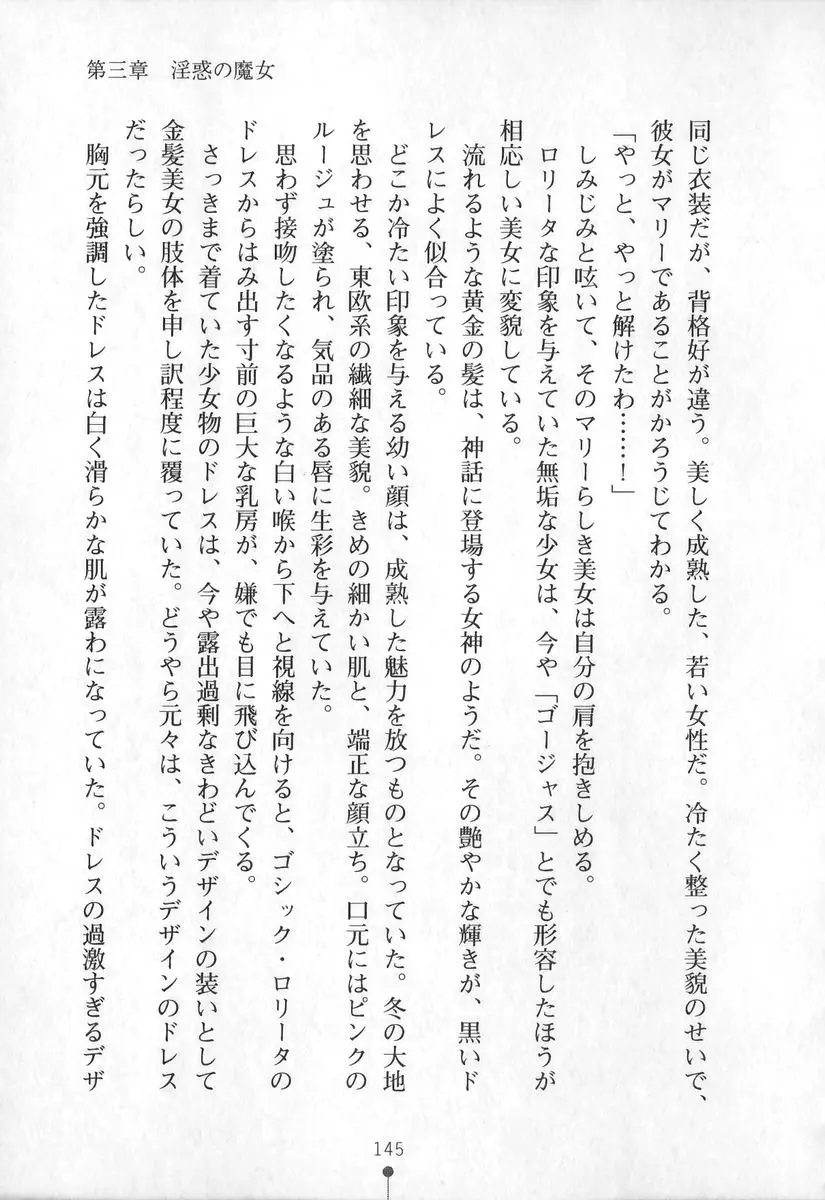 第三章　淫惑の魔女
同じ衣装だが、背格好が違う。美しく成熟した、若い女性だ。冷たく整った美貌のせいで、
彼女がマリーであることがかろうじてわかる。
「やっと、やっと解けたわ……！」
しみじみと呟いて、そのマリーらしき美女は自分の肩を抱きしめる。
ロリータな印象を与えていた無垢な少女は、今や「ゴージャス」とでも形容したほうが
相応しい美女に変貌している。
流れるような黄金の髪は、神話に登場する女神のようだ。その艶やかな輝きが、黒いド
レスによく似合っている。
どこか冷たい印象を与える幼い顔は、成熟した魅力を放つものとなっていた。冬の大地
を思わせる、東欧系の繊細な美貌。きめの細かい肌と、端正な顔立ち。口元にはピンクの
ルージュが塗られ、気品のある唇に生彩を与えていた。
思わず接吻したくなるような白い喉から下へと視線を向けると、ゴシック・ロリータの
ドレスからはみ出す寸前の巨大な乳房が、嫌でも目に飛び込んでくる。
さっきまで着ていた少女物のドレスは、今や露出過剰なきわどいデザインの装いとして
金髪美女の肢体を申し訳程度に覆っていた。どうやら元々は、こういうデザインのドレス
だったらしい。
胸元を強調したドレスは白く滑らかな肌が露わになっていた。ドレスの過激すぎるデザ
145